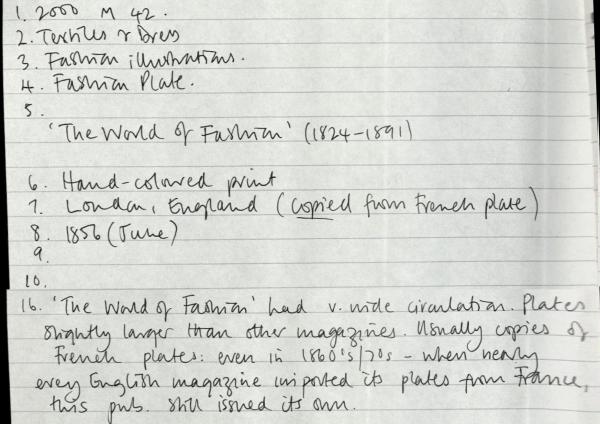 1. 2000 M 42.
2. Textiles & Dress
3. Fashion illustrations.
4. Fashion Plate.
5.
'The World of Fashion' (1824-1891)
6. Hand-coloured print
7. London, England (copied from French plate)
8. 1856 (June)
9.
10.
16. 'The World of Fashion' had v. wide circulation. Plates
slightly larger than other magazines. Usually copies of
French plates: even in 1860's/70s - when nearly
every English magazine imported its plates from France,
this pub. still issued its own.